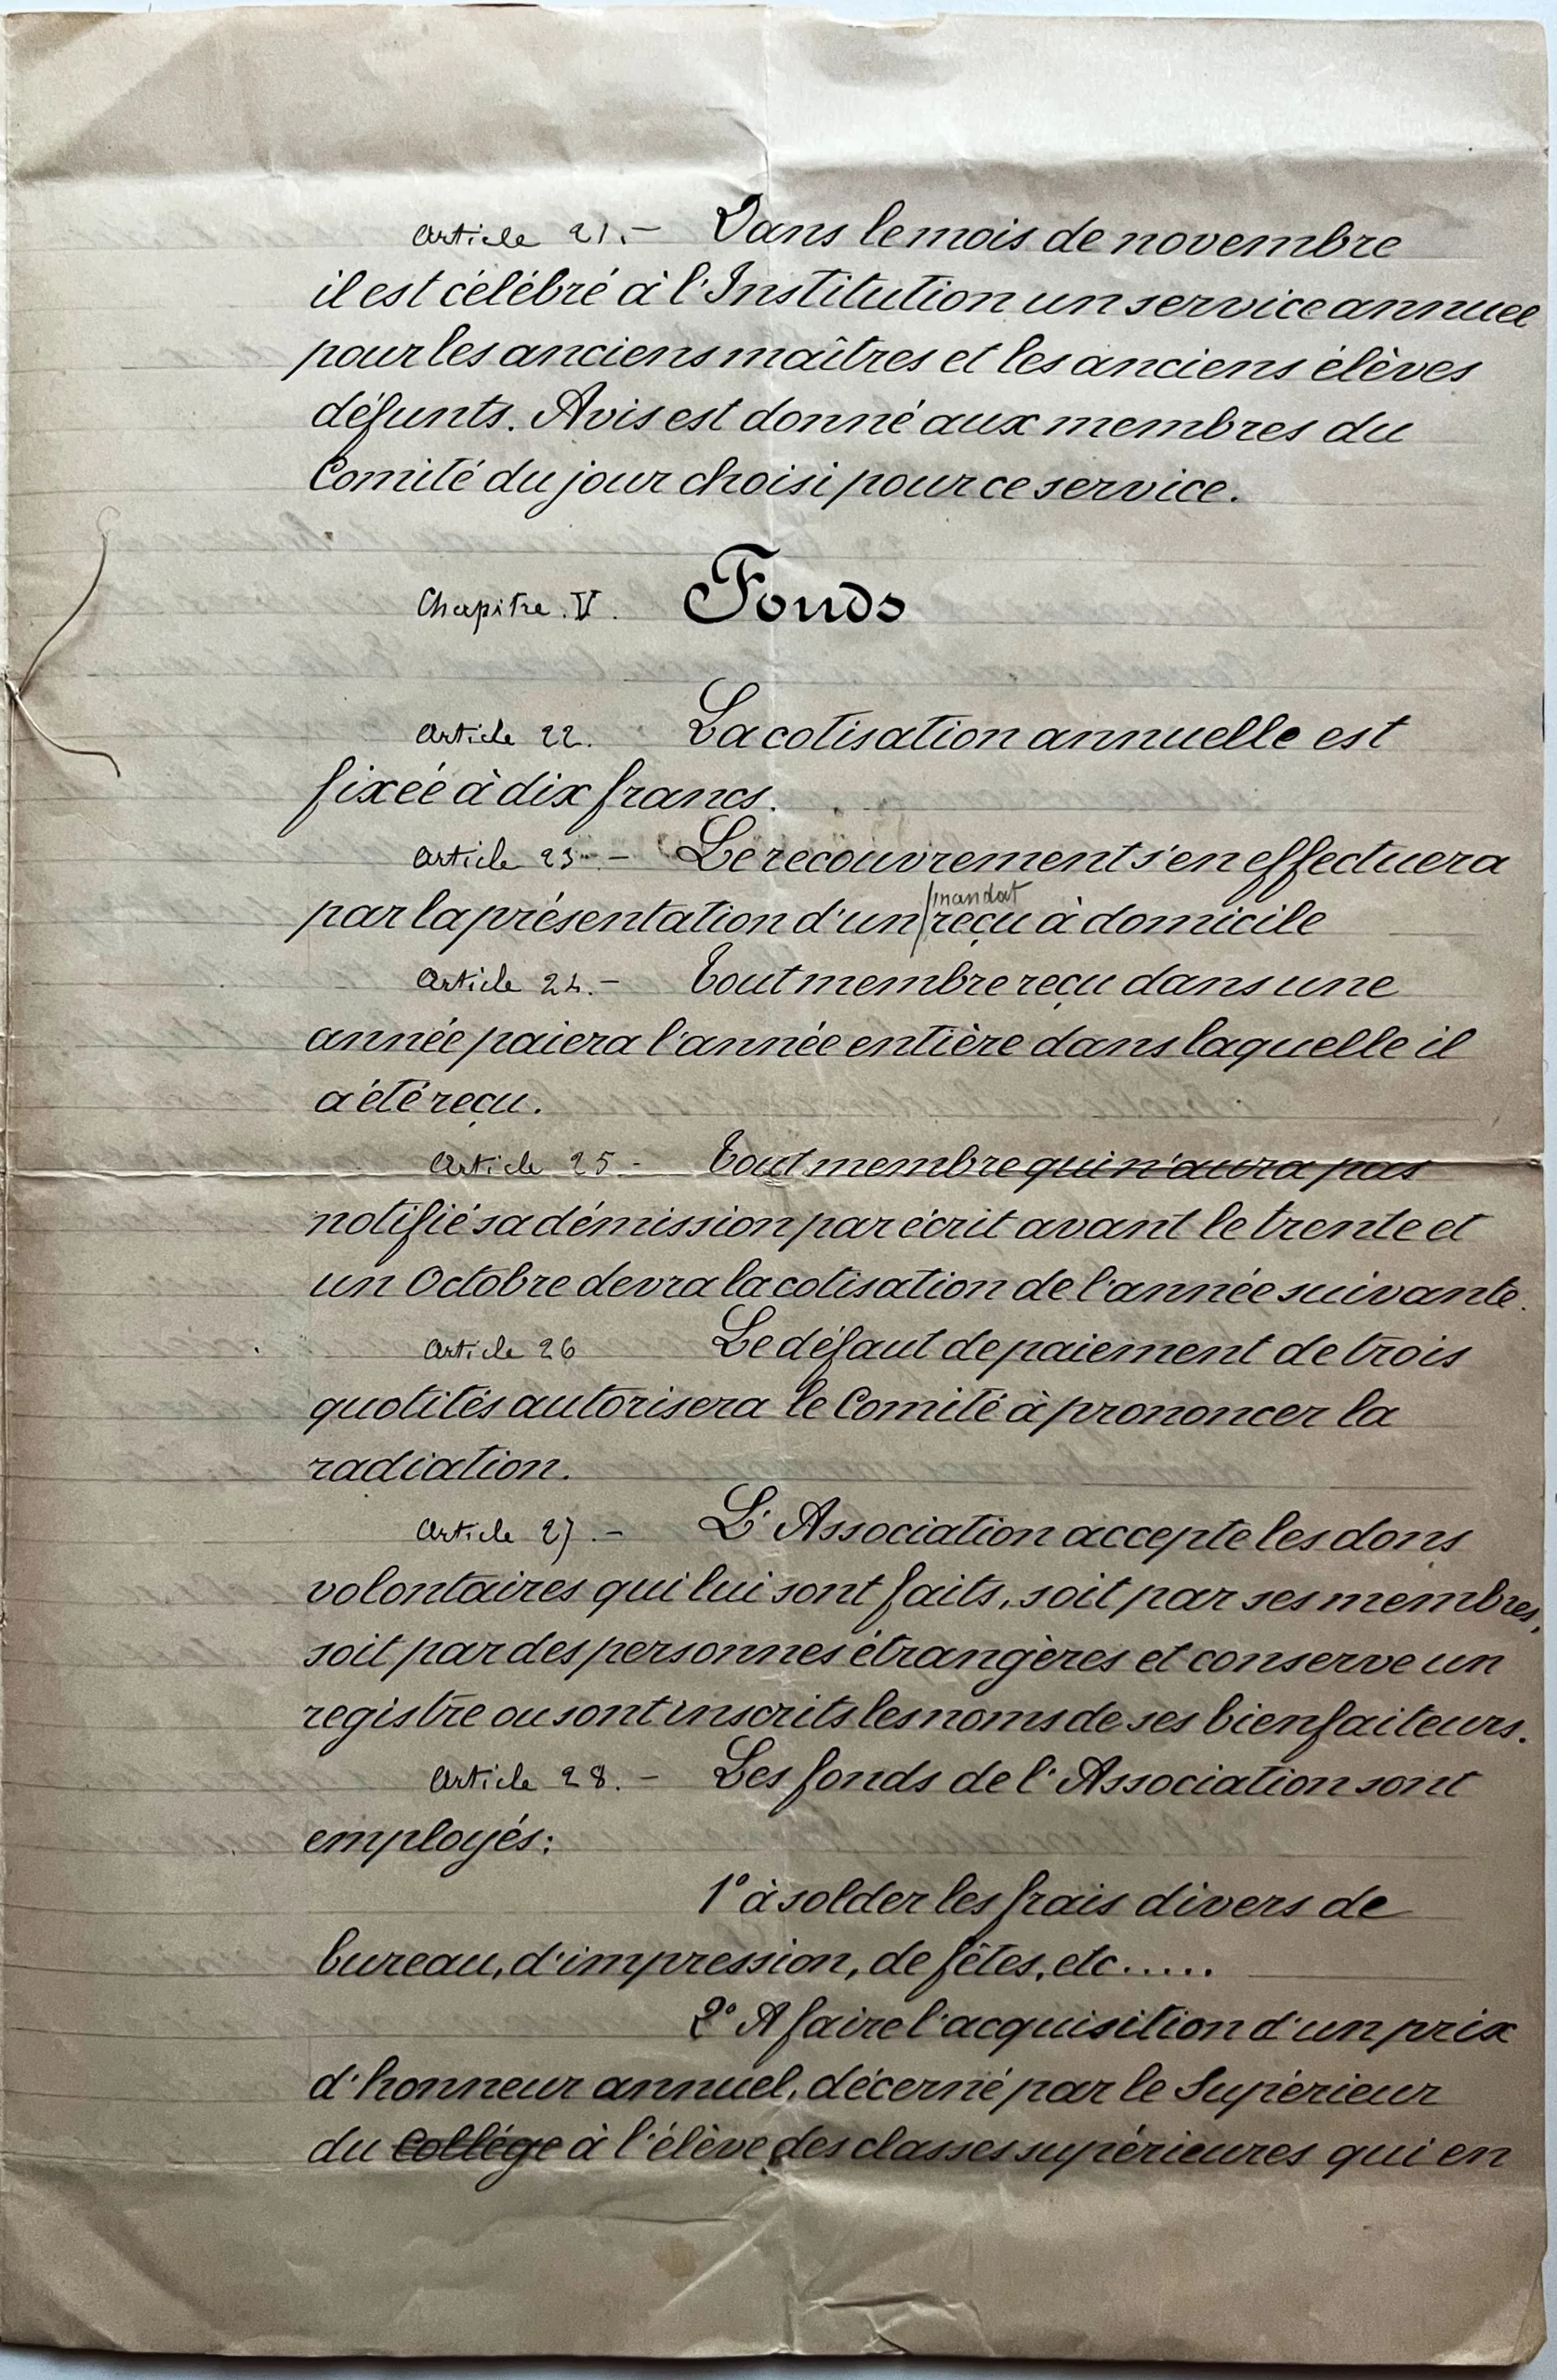 Article 21. – Dans le mois de novembre
il est célébré à l'Institution un service annuel
pour les anciens maîtres et les anciens élèves
défunts. Avis est donné aux membres du
Comité du jour choisi pour ce service.
Chapitre. V. Fonds
Article 22. La cotisation annuelle est
fixée à dix francs.
Article 23 – Le recouvrement s'en effectuera
mandat
par la présentation d'un reçu à domicile
Article 24. – Tout membre reçu dans une
année paiera l'année entière dans laquelle il
a été reçu.
Article 25 – Tout membre qui n'aura pas
notifié sa démission par écrit avant le trente et
un Octobre devra la cotisation de l'année suivante.
Article 26 Le défaut de paiement de trois
quotités autorisera le Comité à prononcer la
radiation.
Article 27. – L'Association accepte les dons
volontaires qui lui sont faits, soit par ses membres,
soit par des personnes étrangères et conserve un
registre ou sont inscrits les noms de ses bienfaiteurs.
Article 28. – Les fonds de l'Association sont
employés:
1° à solder les frais divers de
bureau, d'impression, de fêtes, etc.....
2° A faire l'acquisition d'un prix
d'honneur annuel, décerné par le Supérieur
du Collége à l'élève des classes supérieures qui en